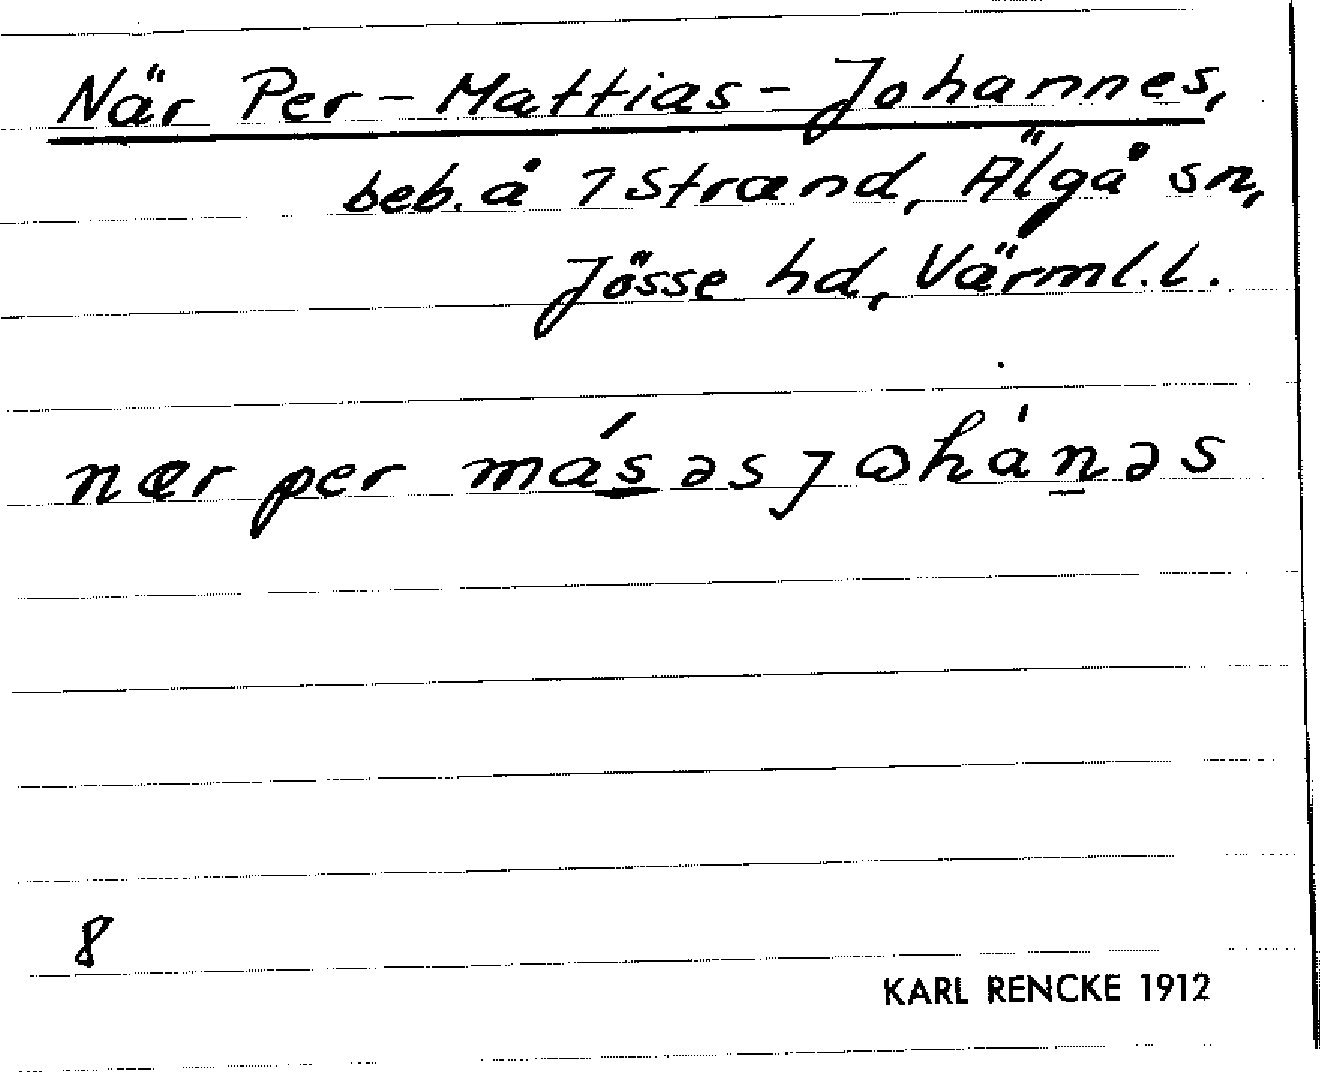 När Per-Mattias-Johannes,
beb. å 7 Strand, Älgå sn,
Jösse hd, Värml. l.
nær per másəsȷωhánəs
8
KARL RENCKE 1912